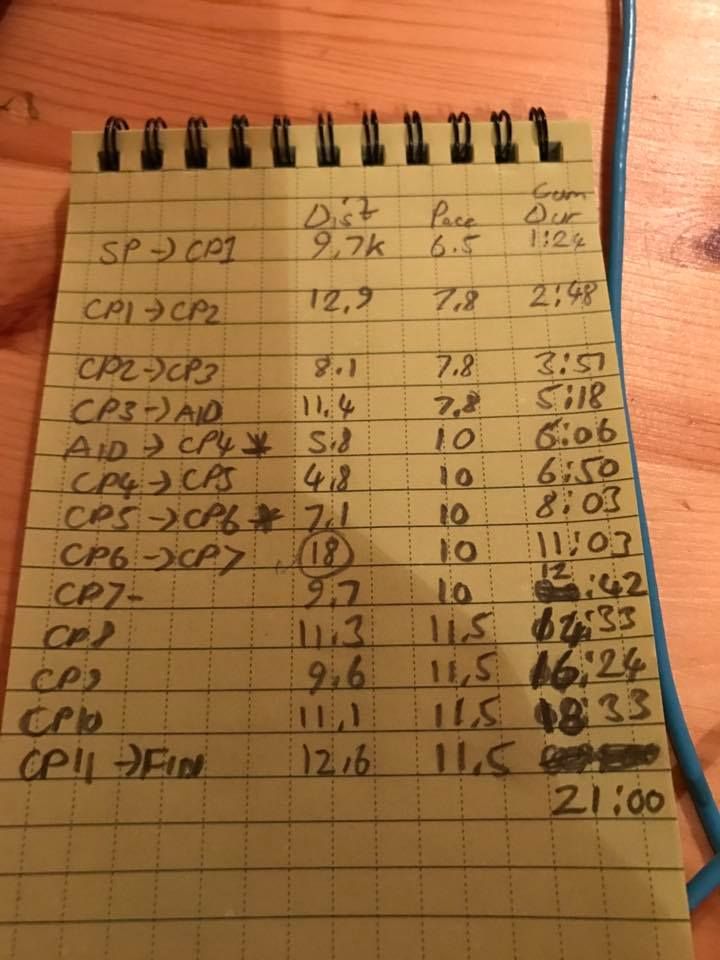 Cum
Dist Pace Dur
SP → CP1 9.7k 6.5 1:24
CP1 → CP2 12.9 7.8 2:48
CP2 → CP3 8.1 7.8 3:51
CP3 → AID 11.4 7.8 5:18
AID → CP4 * 5.8 10 6:06
CP4 → CP5 4.8 10 6:50
CP5 → CP6 * 7.1 10 8:03
CP6 → CP7 18 10 11:03
CP7- 9.7 10 12:42
CP8 11.3 11.5 14:33
CP9 9.6 11.5 16:24
CP10 11.1 11.5 18:33
CP11 → FIN 12.6 11.5
21:00